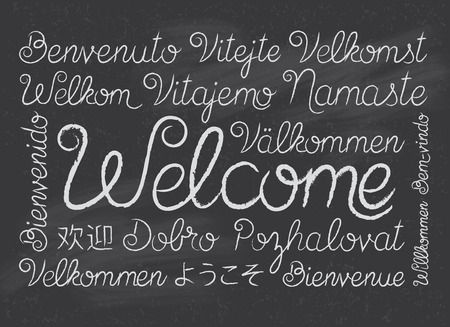 Benvenuto Vitejte Velkomst
Welkom Vitajemo Namaste
Bienvenido
Välkommen
Welcome
欢迎 Dobro Pozhalovat
Velkommen ようこそ Bienvenue
Willkommen Bem-vindo